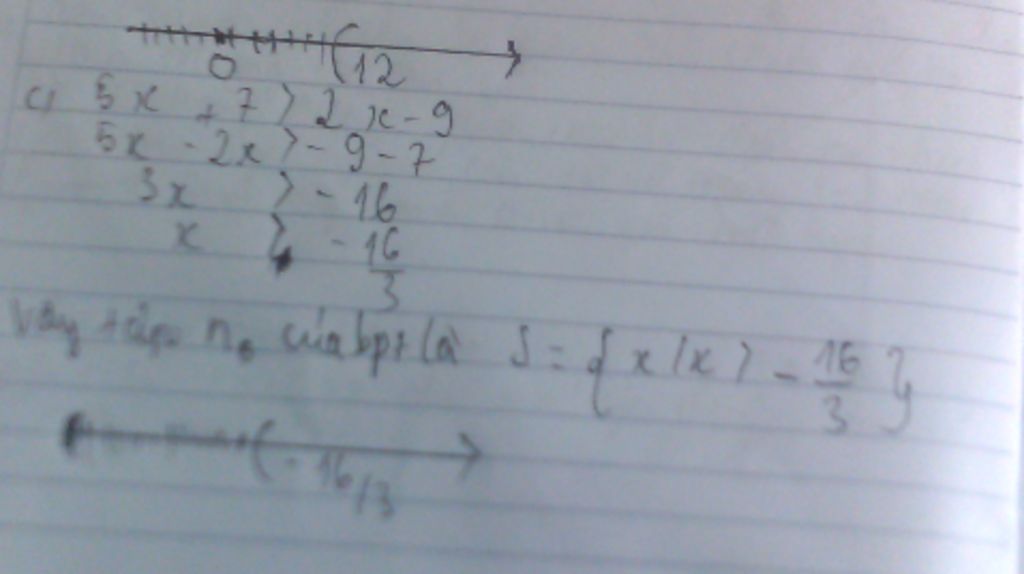 0 (12
c) 5x + 7 > 2x - 9
5x - 2x > - 9 - 7
3x > - 16
x > - 16/3
Vậy tập n0 của bpt là S = { x / x > - 16/3 }
( - 16/3